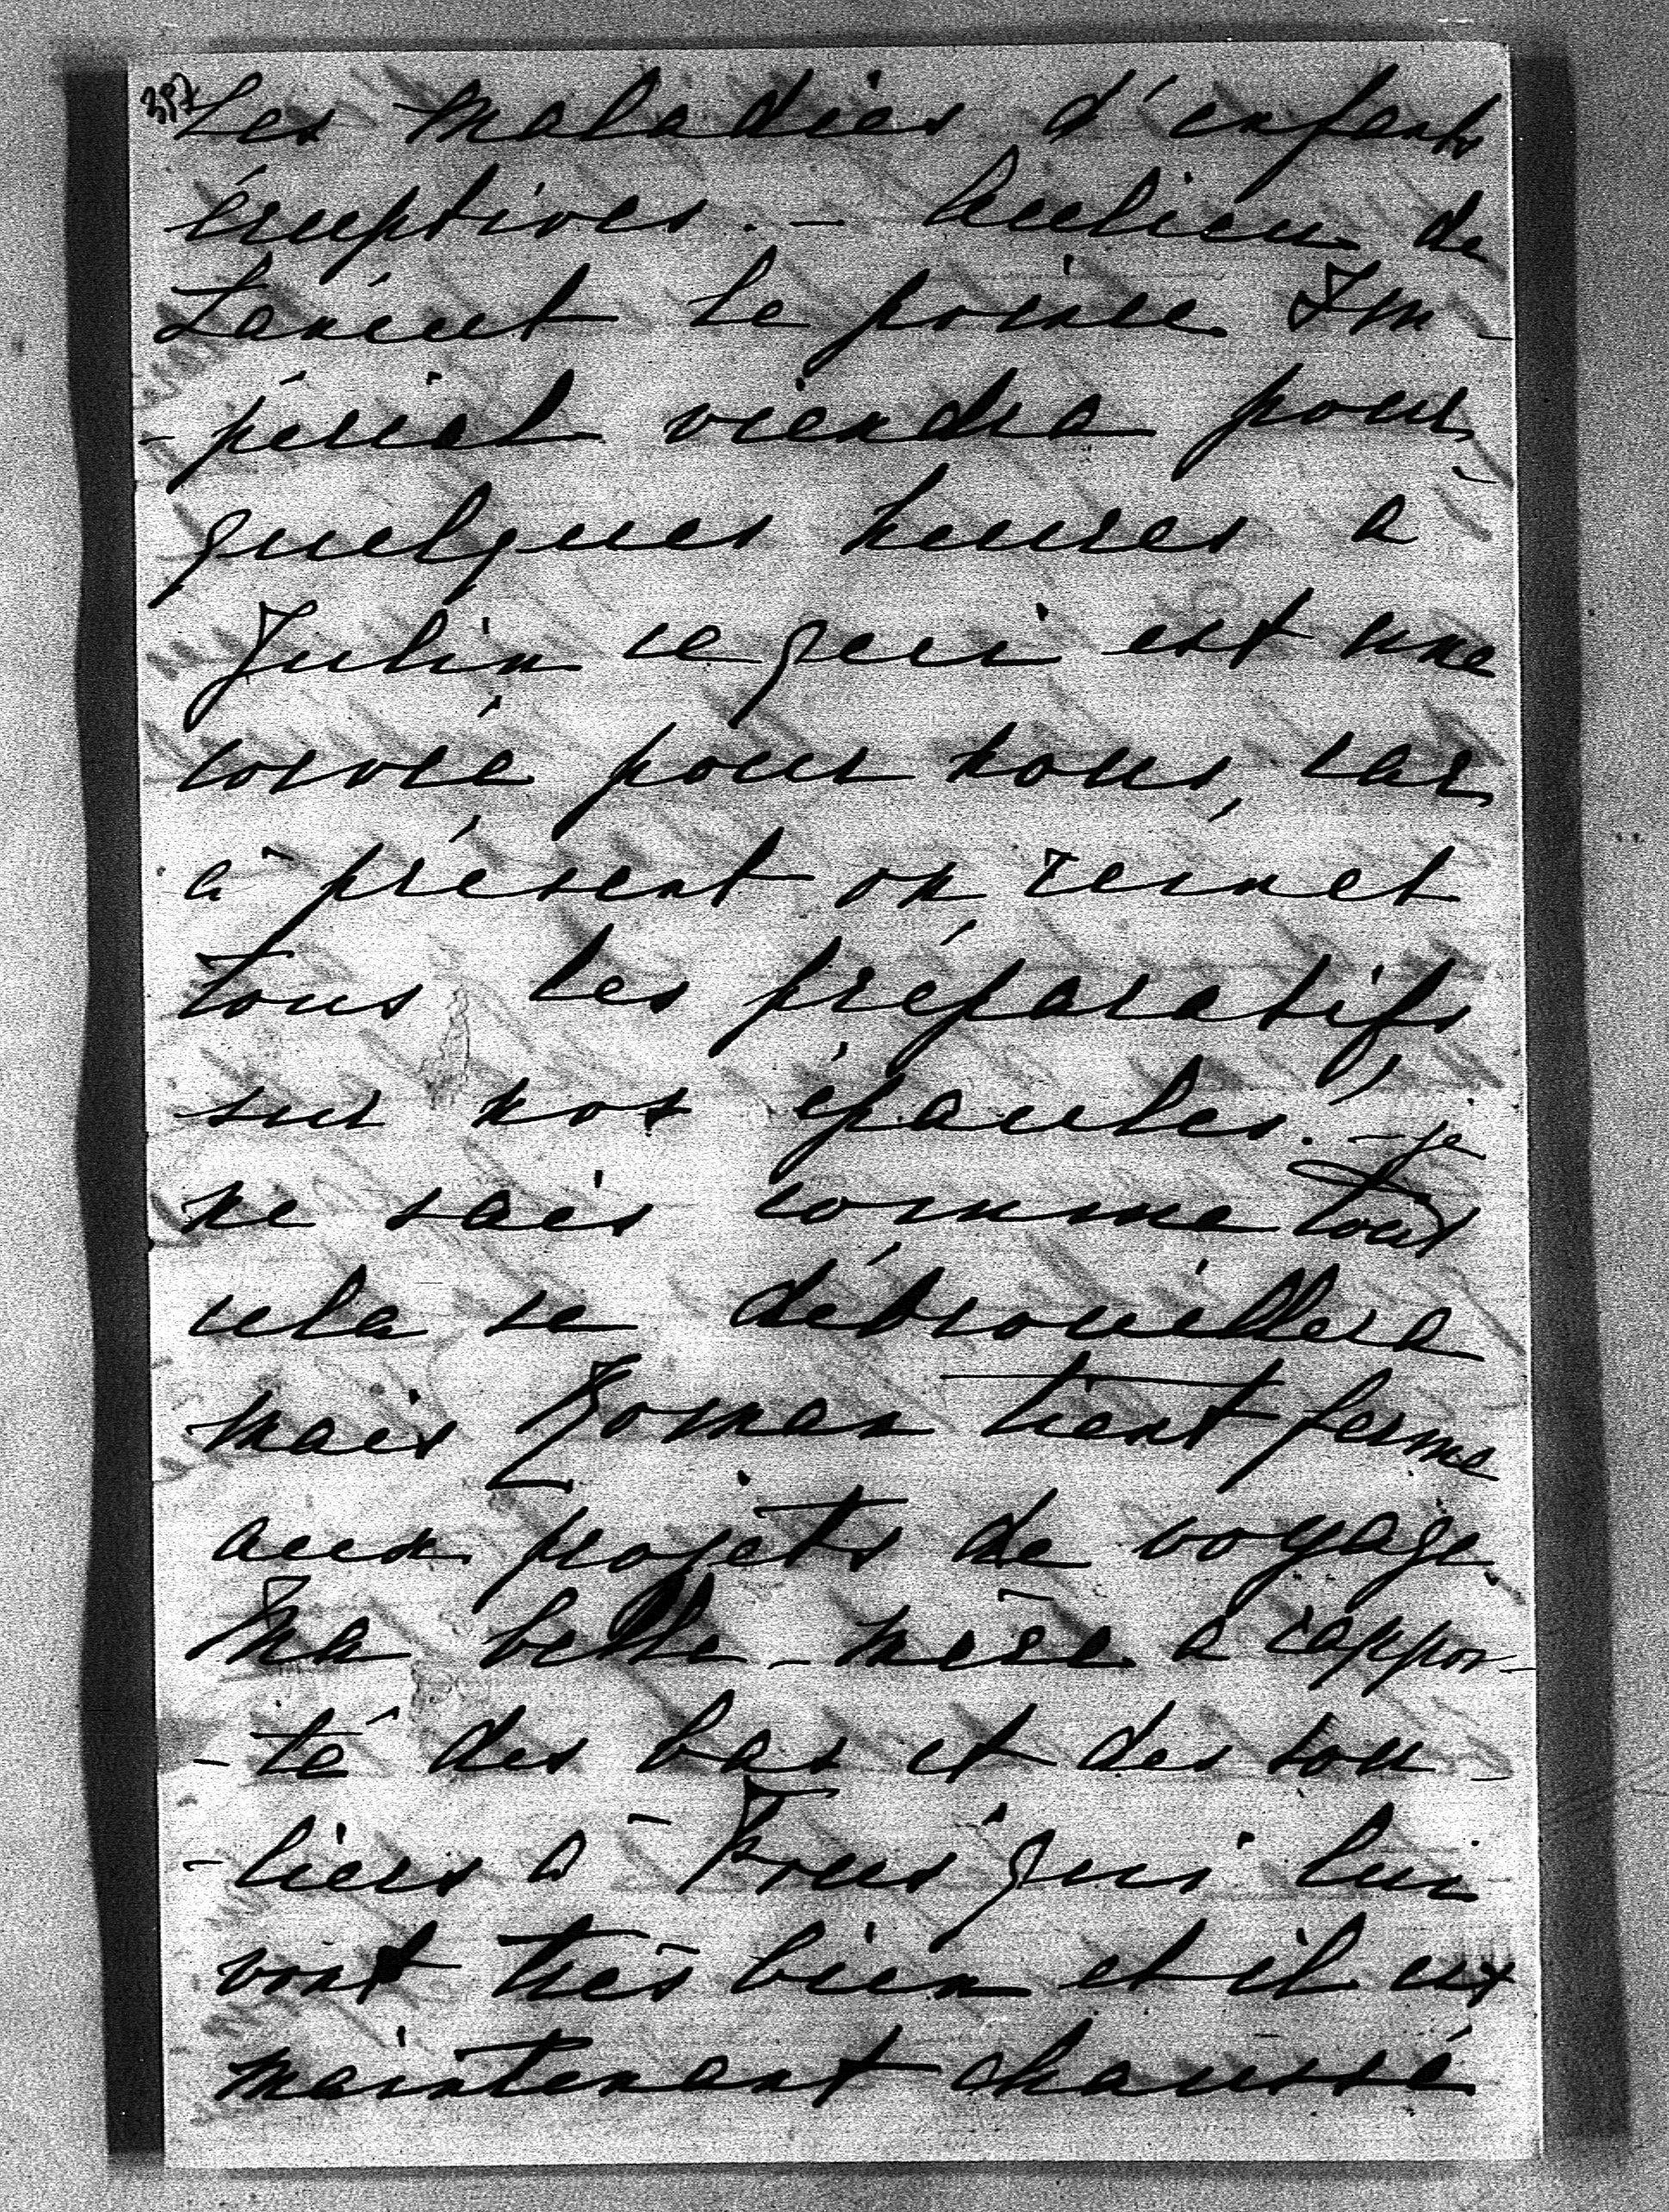 397
Les maladies d'enfants
éruptives. - Aulieu de
Lancut le prince Im-
-périal viendra pour
quelques heures a
Julin ce qui est une
corvée pour nous, car
à présent on remet
tous les préparatifs
sur nos épaules. - je
ne sais comme tout
cela se débrouillera
mais Roman tient ferme
aux projets de voyage
Ma belle-mère a rappor-
-té des bas et des sou-
-liers à qui lui
vont très bien et il est
maintenant chaussé